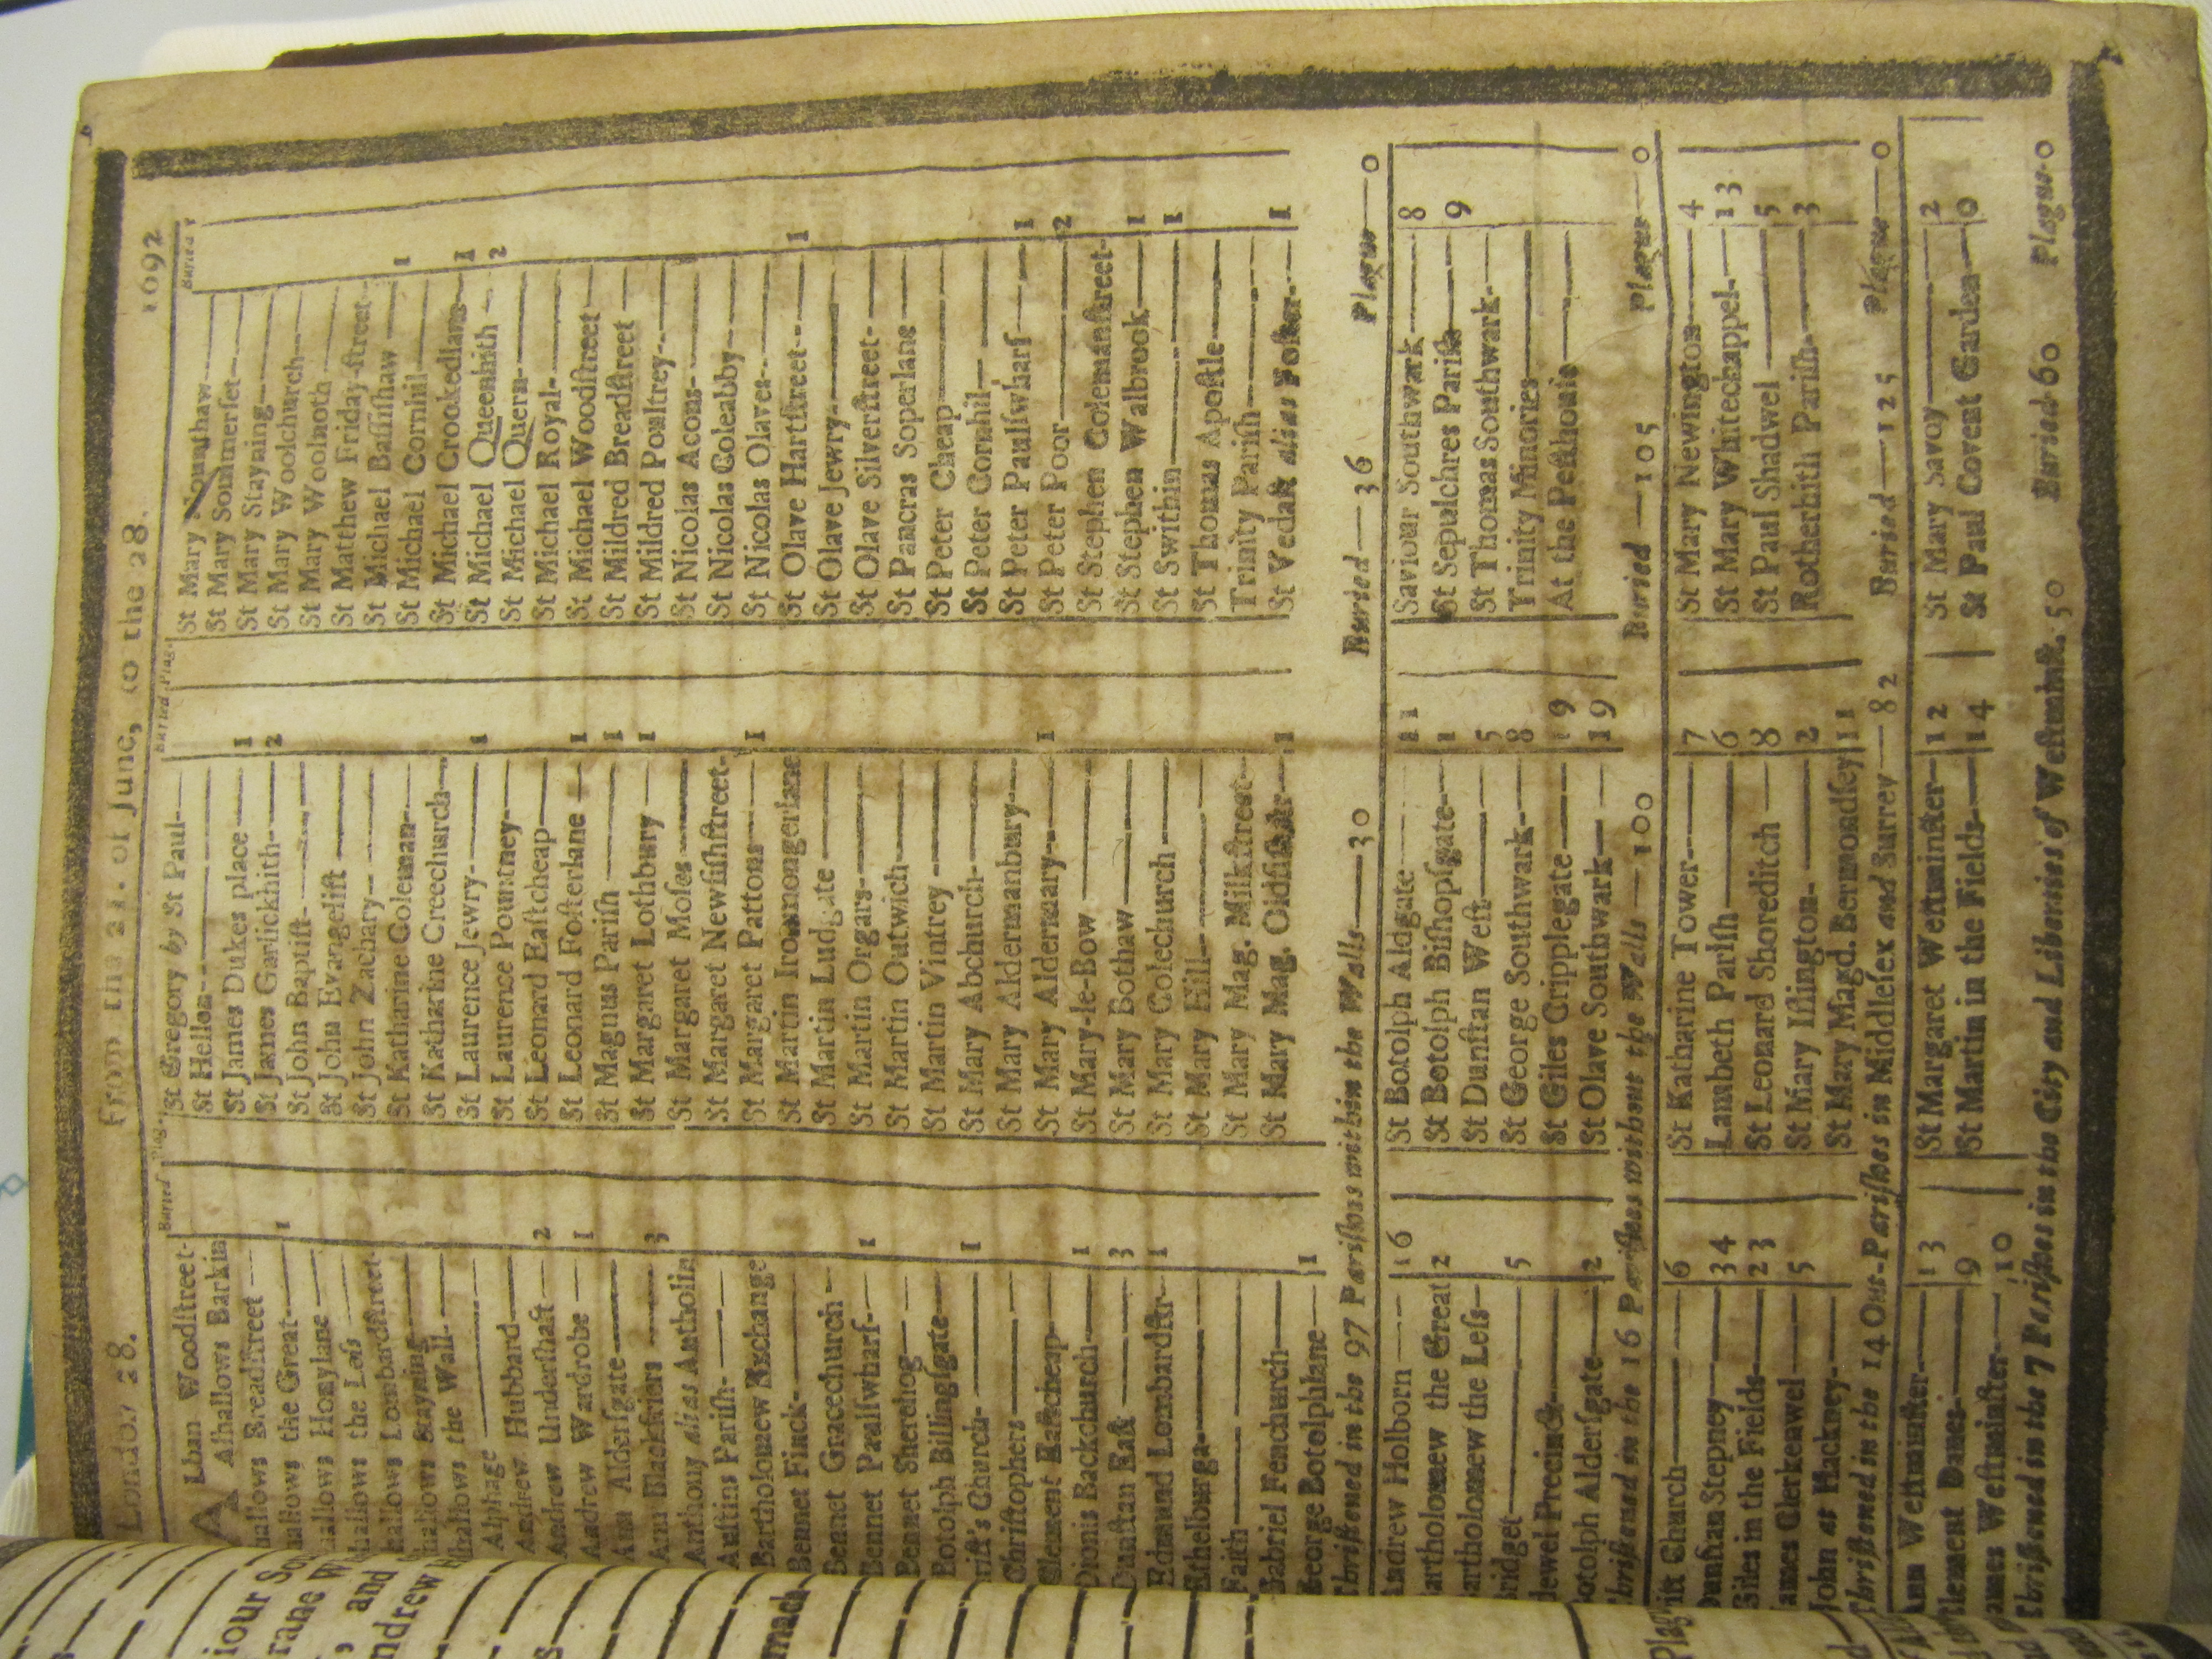 London 28. From the 21. of June, to the 28. 1692
Buried Plag. Buried Plag. Buried
A Lban Woodſtreet-
Alhallows Barkin
hallows Breadſtreet
hallows the Great 1
hallows Honylane
hallows the Leſs
hallows Lombardſtreet
hallows Stayning
hallows the Wall
Alphage
Andrew Hubbard
Andrew Underſhaft 2
Andrew Wardrobe 1
Ann Alderſgate
Ann Blackfriers 3
Anthony alias Antholin
Auſtins Pariſh
Bartholomew Exchange
Bennet Finck
Bennet Gracechurch
Bennet Paulſwharf 1
Bennet Sherehog
Botolph Billingſgate
riſt's Church 1
Chriſtophers
Clement Eaſtcheap
Dionis Backchurch 1
Dunſtan Eaſt 3
Edmund Lombardſtr 1
Ethelburga
Faith
Gabriel Fenchurch
George Botolphlane 1
St Gregory by St Paul
St Hellen
St James Dukes place 1
St James Garlickhith 2
St John Baptiſt
St John Evangeliſt
St John Zachary
St Katharine Coleman
St Katharine Creechurch
St Laurence Jewry 1
St Laurence Pountney
St Leonard Eaſtcheap
St Leonard Foſterlane 1
St Magnus Pariſh 1
St Margaret Lothbury 1
St Margaret Moſes
St Margaret Newfiſhſtreet
St Margaret Pattons 1
St Martin Ironmongerlane
St Martin Ludgate
St Martin Orgars
St Martin Outwich
St Martin Vintrey
St Mary Abchurch
St Mary Aldermanbury
St Mary Aldermary 1
St Mary-le-Bow
St Mary Bothaw
St Mary Colechurch
St Mary Hill
St Mary Mag. Milkſtreet
St Mary Mag. Oldfiſhſtr 1
St Mary Mounthaw
St Mary Sommerſet
St Mary Stayning
St Mary Woolchurch
St Mary Woolnoth
St Matthew Friday-ſtreet
St Michael Baſſiſhaw 1
St Michael Cornhil
St Michael Crookedlane 1
St Michael Queenhith 2
St Michael Quern
St Michael Royal
St Michael Woodſtreet
St Mildred Breadſtreet
St Mildred Poultrey
St Nicolas Acons
St Nicolas Coleabby
St Nicolas Olaves
St Olave Hartſtreet 1
St Olave Jewry
St Olave Silverſtreet
St Pancras Soperlane
St Peter Cheap
St Peter Cornhil
St Peter Paulſwharf 1
St Peter Poor 2
St Stephen Colemanſtreet
St Stephen Walbrook 1
St Swithin 1
St Thomas Apoſtle
Trinity Pariſh
St Vedaſt alias Foſter 1
Chriſtened in the 97 Pariſhes within the Walls—30 Buried—36 Plague—0
Andrew Holborn 16
artholomew the Great 2
artholomew the Leſs
ridget 5
idewel Precinct
otolph Alderſgate 2
St Botolph Aldgate 21
St Botolph Biſhopſgate 1
St Dunſtan Weſt 5
St George Southwark 8
St Giles Cripplegate 19
St Olave Southwark 19
Saviour Southwark 8
St Sepulchres Pariſh 9
St Thomas Southwark
Trinity Minories
At the Peſthouſe
Chriſtened in the 16 Pariſhes without the Walls—100 Buried—105 Plague—0
riſt Church 6
Dunſtan Stepney 34
Giles in the Fields 23
James Clerkenwel 5
John at Hackney
St Katharine Tower 7
Lambeth Pariſh 6
St Leonard Shoreditch 8
St Mary Iſlington 2
St Mary Magd. Bermondſey 11
St Mary Newington 4
St Mary Whitechappel 13
St Paul Shadwel 5
Rotherhith Pariſh 3
Chriſtened in the 14 Out-Pariſhes in Middleſex and Surrey—82 Buried—125 Plague—0
Ann Weſtminſter 13
Clement Danes 9
James Weſtminſter 10
St Margaret Weſtminſter 12
St Martin in the Fields 14
St Mary Savoy 2
St Paul Covent Garden 0
Chriſtened in the 7 Pariſhes in the City and Liberties of Weſtminſt. 50 Buried 60 Plague-0
iour So
rane W
, and
ndrew
mach
Plag